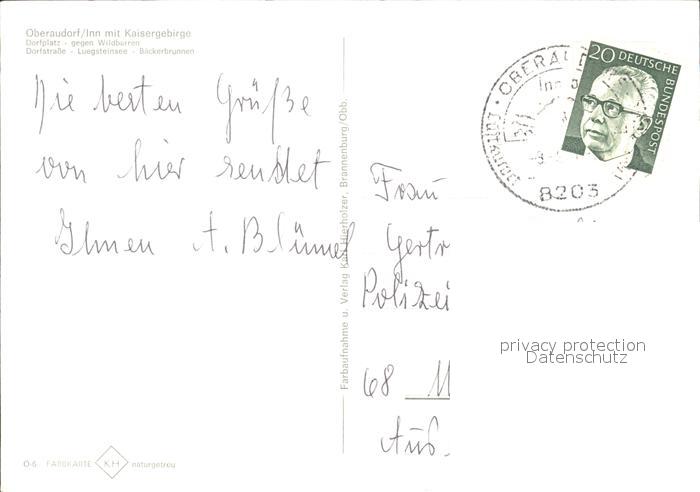 Oberaudorf/Inn mit Kaisergebirge
Dorfplatz - gegen Wildbarren
Dorfstraße - Luegsteinsee - Bäckerbrunnen
Die besten Grüße
von hier sendet
Ihnen A. Blümel
Farbaufnahme u. Verlag Karl Hierholzer, Brannenburg/Obb.
20 DEUTSCHE BUNDESPOST
8203
Frau
Gertr
Polizei
68 M
Aus.
privacy protection
Datenschutz
Ö-6 FARBKARTE KH naturgetreu